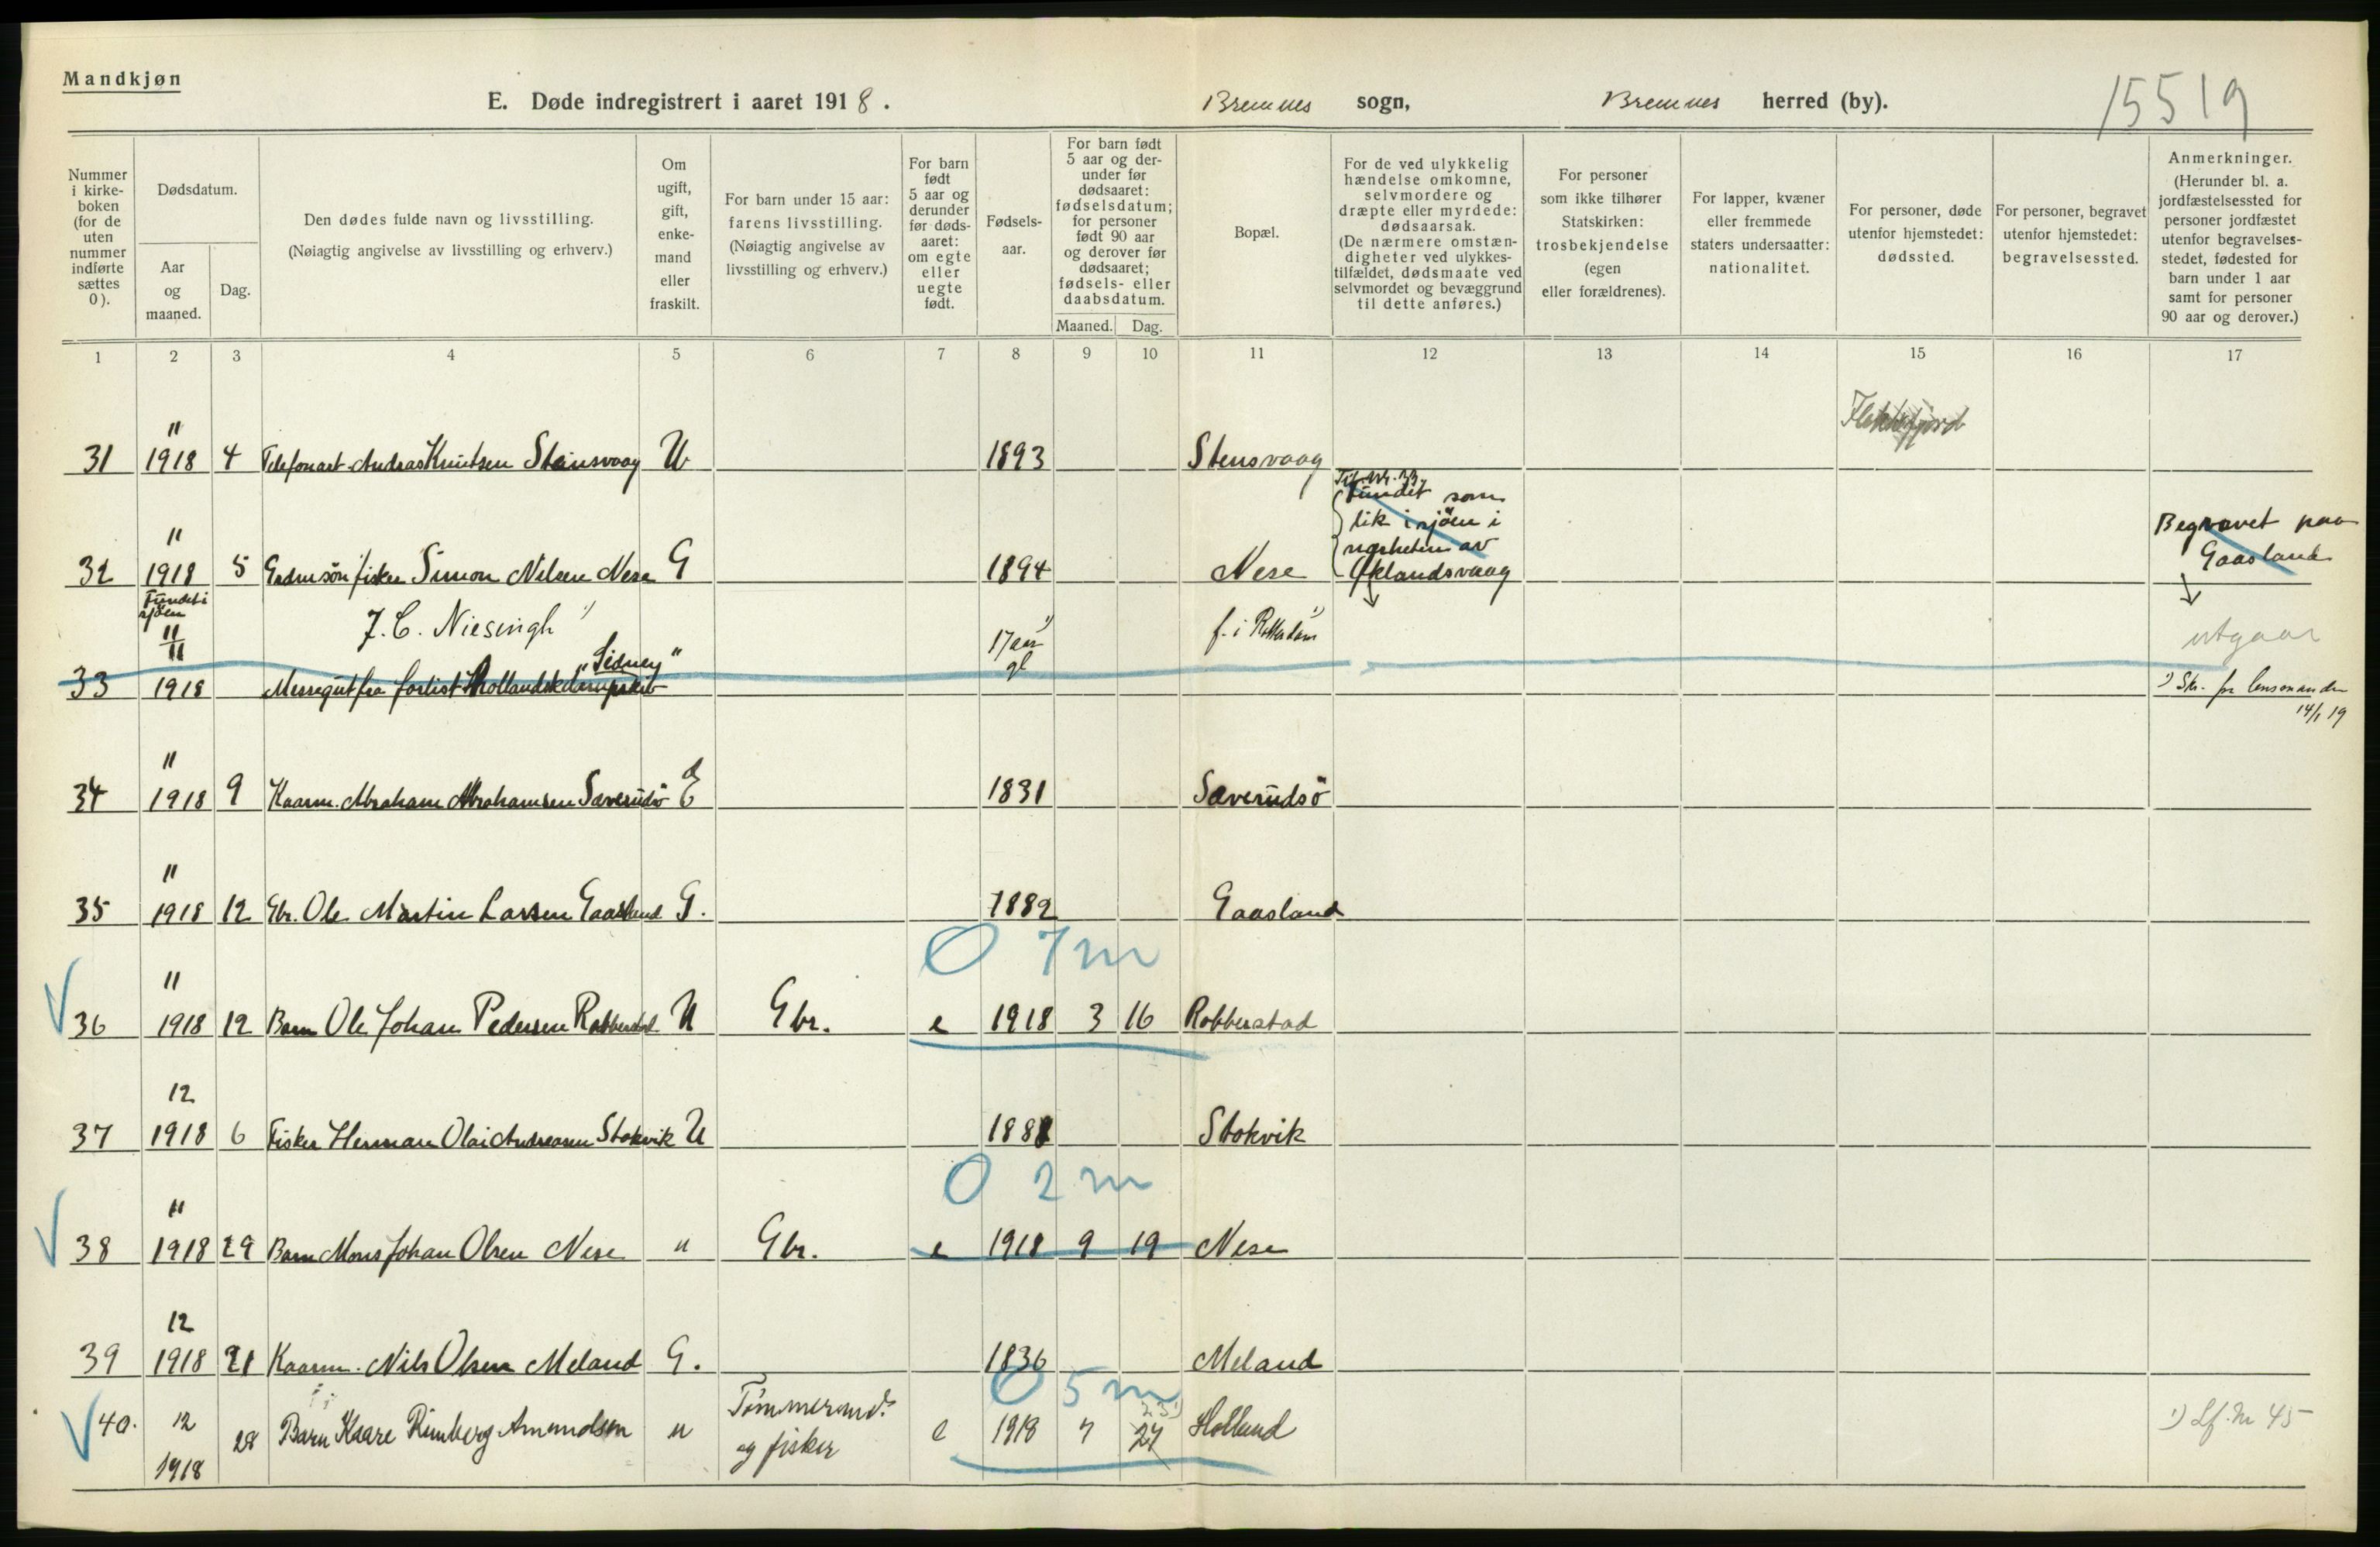 Mandkjøn
E. Døde indregistrert i aaret 1918.
Bremnes sogn,
Bremnes herred (by).
15519
Nummer
i kirke-
boken
(for de
uten
nummer
indførte
sættes
0).
Dødsdatum.
Aar
og
maaned.
Dag.
Den dødes fulde navn og livsstilling.
(Nøiagtig angivelse av livsstilling og erhverv.)
Om
ugift,
gift,
enke-
mand
eller
fraskilt.
For barn under 15 aar:
farens livsstilling.
(Nøiagtig angivelse av
livsstilling og erhverv.)
For barn
født
5 aar og
derunder
før døds-
aaret:
om egte
eller
uegte
født.
Fødsels-
aar.
For barn født
5 aar og der-
under før
dødsaaret:
fødselsdatum;
for personer
født 90 aar
og derover før
dødsaaret;
fødsels- eller
daabsdatum.
Maaned. Dag.
Bopæl.
For de ved ulykkelig
hændelse omkomne,
selvmordere og
dræpte eller myrdede:
dødsaarsak.
(De nærmere omstæn-
digheter ved ulykkes-
tilfældet, dødsmaate ved
selvmordet og bevæggrund
til dette anføres.)
For personer
som ikke tilhører
Statskirken:
trosbekjendelse
(egen
eller forældrenes).
For lapper, kvæner
eller fremmede
staters undersaatter:
nationalitet.
For personer, døde
utenfor hjemstedet:
dødssted.
For personer, begravet
utenfor hjemstedet:
begravelsessted.
Anmerkninger.
(Herunder bl. a.
jordfæstelsessted for
personer jordfæstet
utenfor begravelses-
stedet, fødested for
barn under 1 aar
samt for personer
90 aar og derover.)
1 2 3 4 5 6 7 8 9 10 11 12 13 14 15 16 17
Flekkefjord
11
31 1918 4 Telefonart. Andras Knutsen Stensvaag U 1893 Stensvaag
Til Nr. 33.
Fundet som
lik i sjöen i
nærheten av
Öklandsvaag
Begravet paa
Gaasland
11
32 1918 5 Gadmsön fisker Simon Nilsen Nese G 1894 Nese
Fundet i
sjöen
11
11
J. C. Niesingh 1)
17 aar 1)
gl
f. i Rotterdam 1)
utgaar
"Sidney"
33 1918 Messegut fra forlist hollandsk dampskib
1) Skr. fra lensmanden
14/1 19
11
34 1918 9 Kaarm. Abraham Abrahamsen Säverudsö E 1831 Säverudsö
11
35 1918 12 Gbr. Ole Martin Larsen Gaasland G. 1882 Gaasland
0 7 m
11
36 1918 12 Barn Ole Johan Pedersen Robberstad U Gbr. e 1918 3 16 Robberstad
12
37 1918 6 Fisker Herman Olai Andreasen Stokvik U 1888 Stokvik
0 2 m
11
38 1918 29 Barn Mons Johan Olsen Nese u Gbr. e 1918 9 19 Nese
12
39 1918 21 Kaarm. Nils Olsen Meland G. 1836 Meland
0 5 m
40. 12
1918 28 Barn Kaare Rimberg Amundsen u Tømmermd.
og fisker e 1918 7 24 23 1) Holland
1) Lf. Nr 45